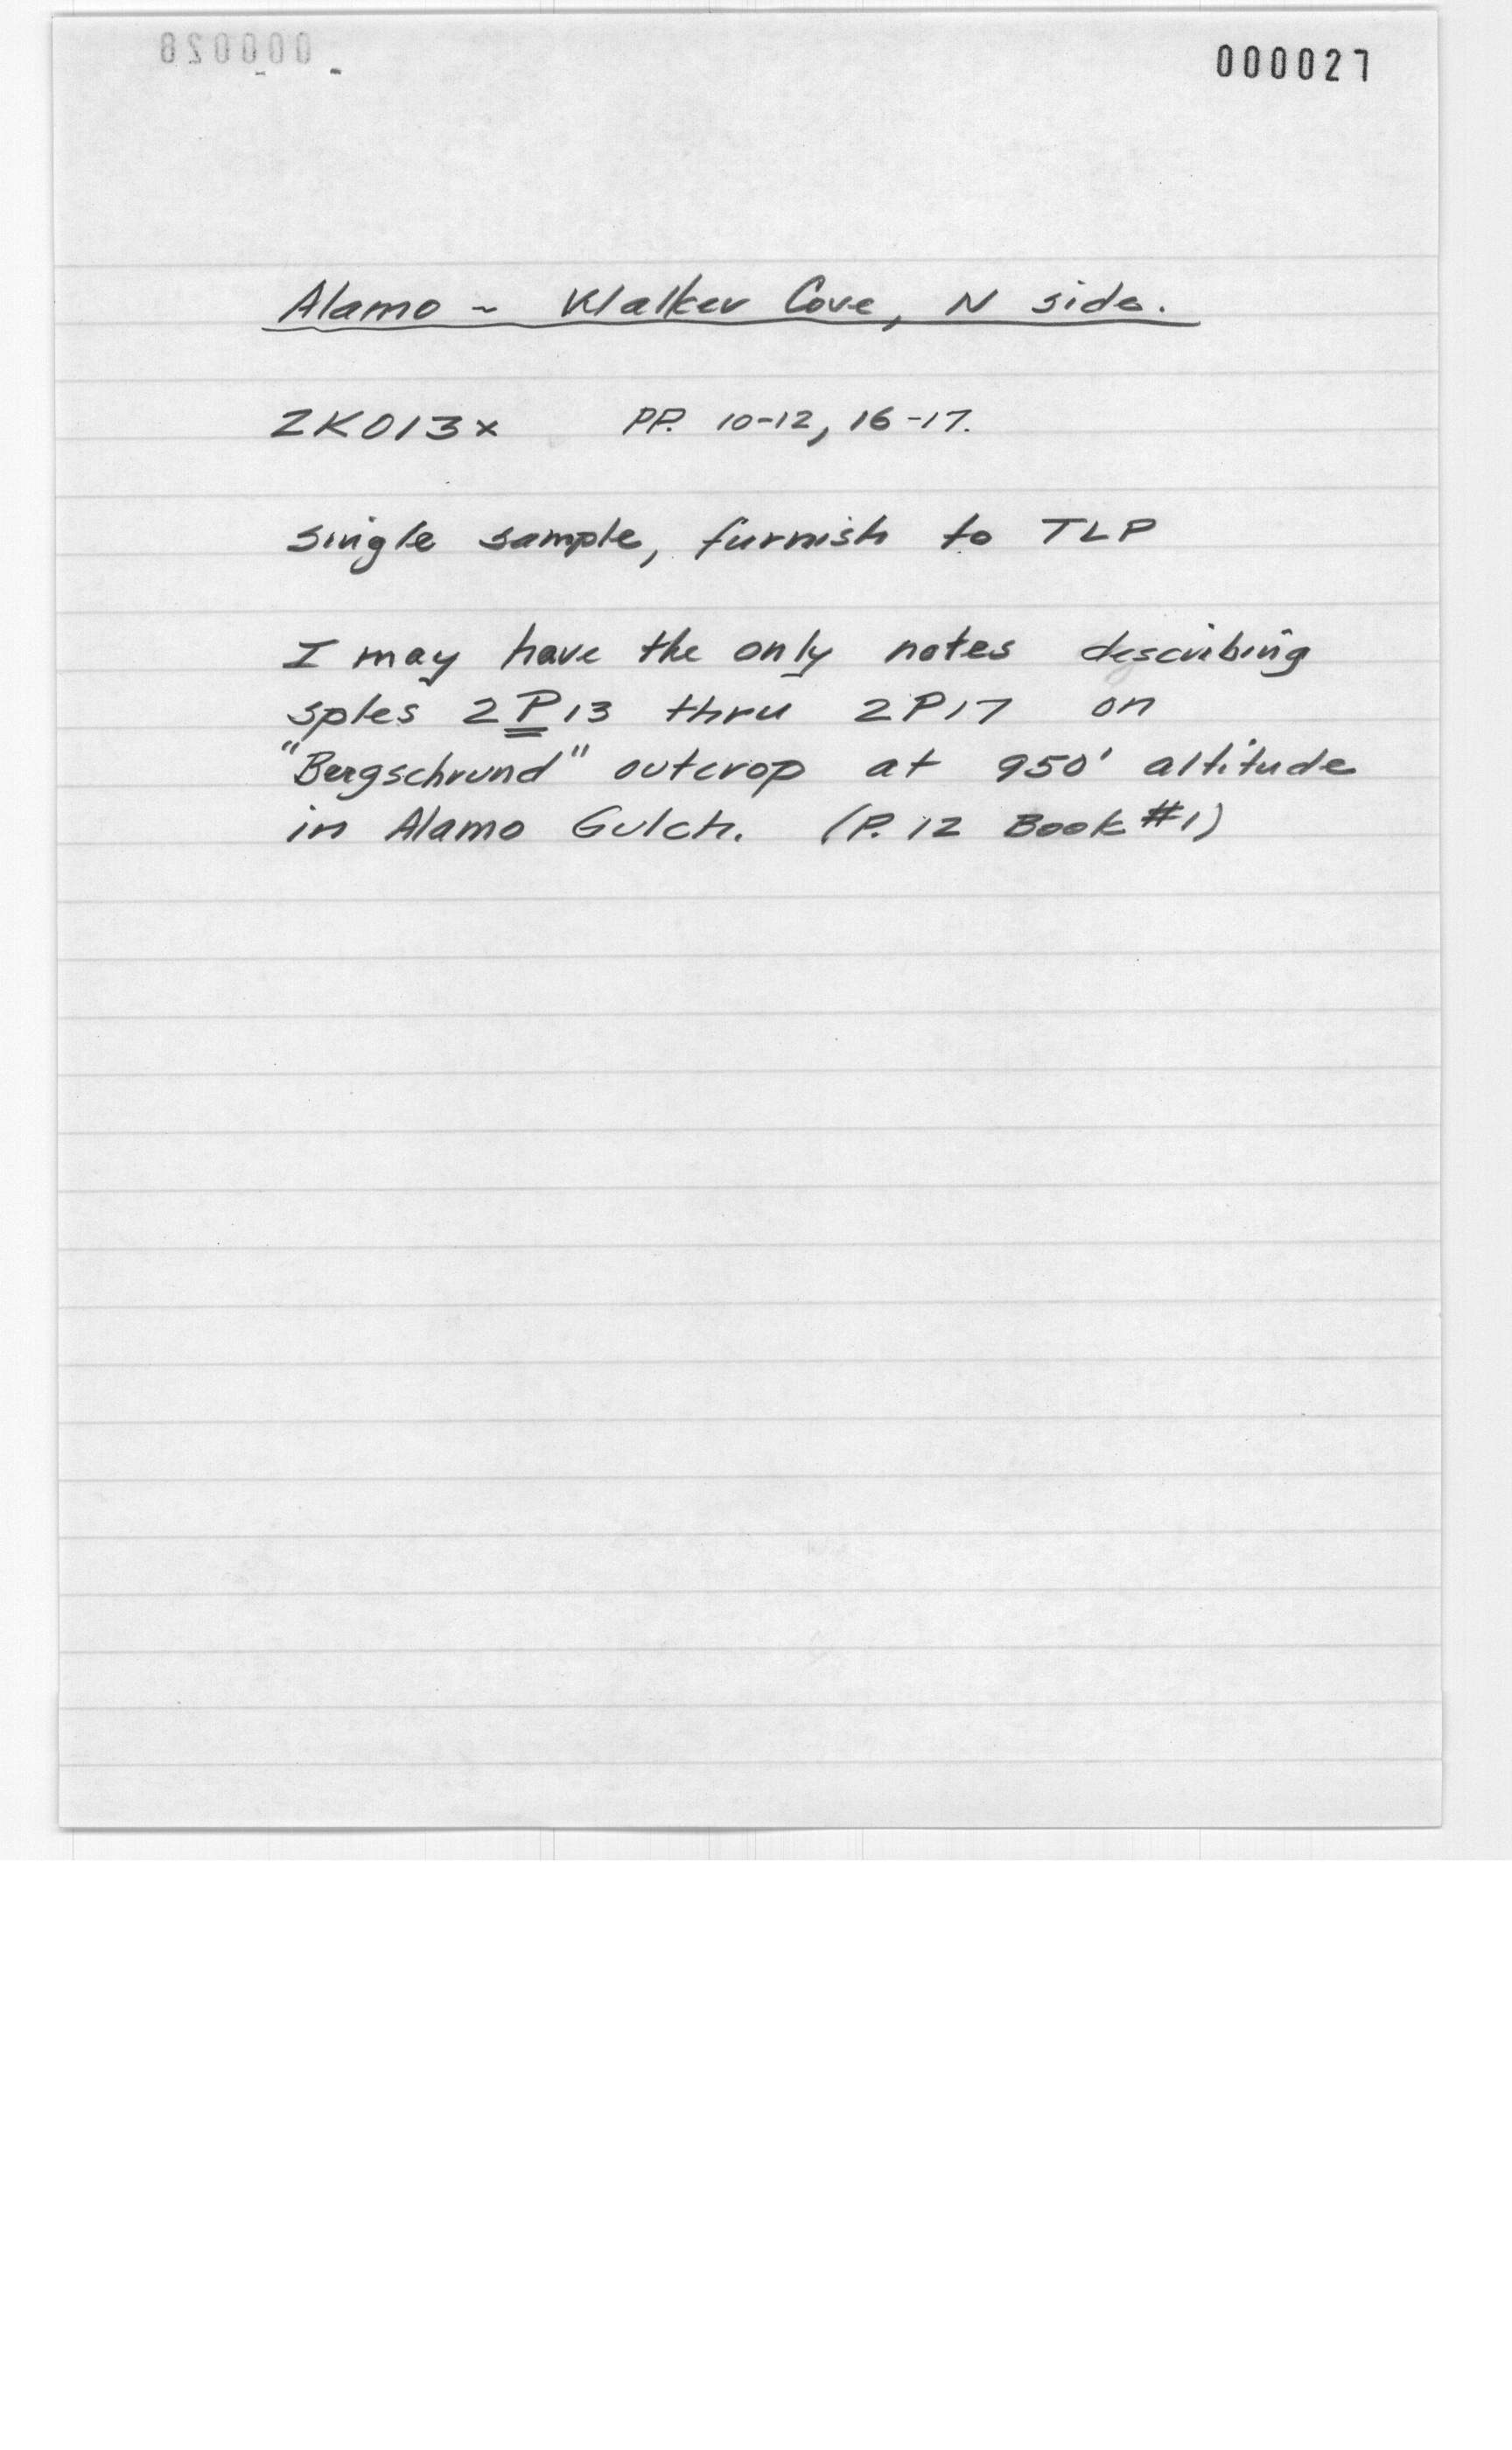 000027
Alamo ~ Walker Cove, N side.
2K013x PP. 10-12, 16-17.
single sample, furnish to TLP
I may have the only notes describing
sples 2P13 thru 2P17 on
"Bergschrund" outcrop at 950' altitude
in Alamo Gulch. (P. 12 Book #1)